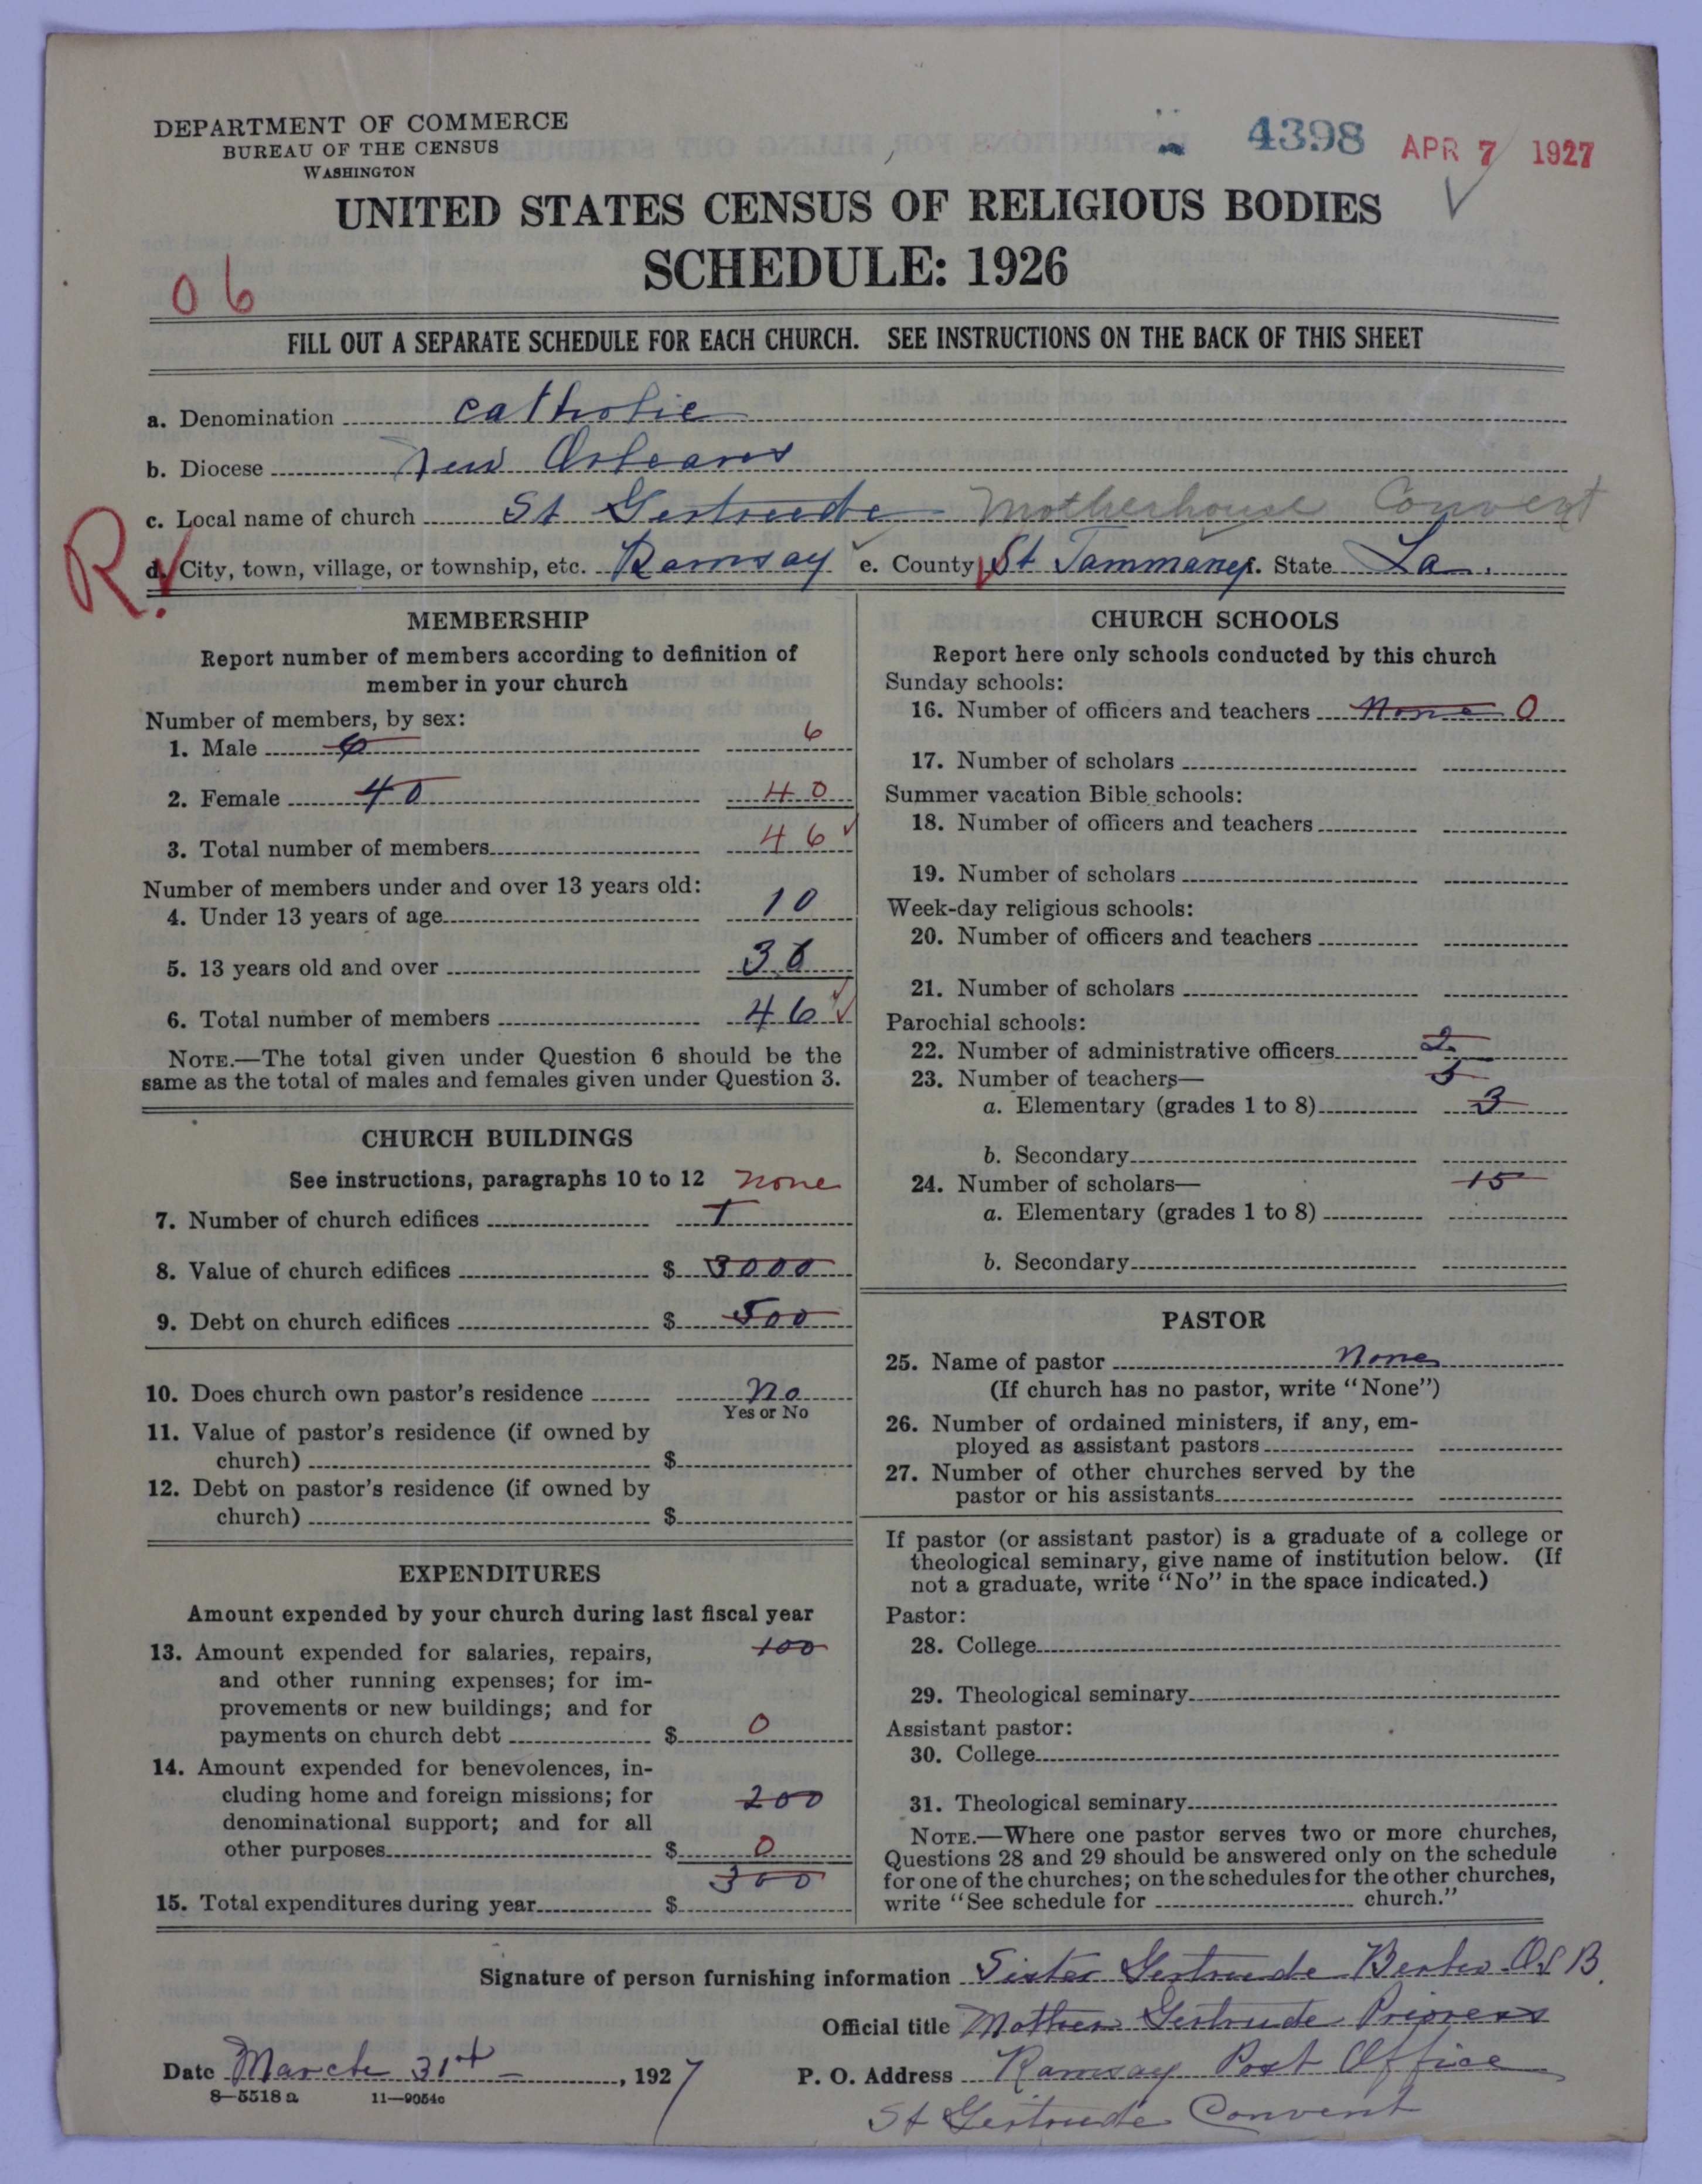 DEPARTMENT OF COMMERCE
BUREAU OF THE CENSUS
WASHINGTON
4398 APR 7 1927
UNITED STATES CENSUS OF RELIGIOUS BODIES
SCHEDULE: 1926
06
FILL OUT A SEPARATE SCHEDULE FOR EACH CHURCH. SEE INSTRUCTIONS ON THE BACK OF THIS SHEET
a. Denomination Catholic
b. Diocese New Orleans
c. Local name of church St Gertrude Motherhouse Convent
R. d. City, town, village, or township, etc. Ramsay e. County St Tammany f. State La.
MEMBERSHIP
Report number of members according to definition of
member in your church
Number of members, by sex:
1. Male 6 6
2. Female 40 40
3. Total number of members 46
Number of members under and over 13 years old:
4. Under 13 years of age 10
5. 13 years old and over 36
6. Total number of members 46
NOTE.—The total given under Question 6 should be the
same as the total of males and females given under Question 3.
CHURCH BUILDINGS
See instructions, paragraphs 10 to 12 none
7. Number of church edifices 1
8. Value of church edifices $ 3000
9. Debt on church edifices $ 500
10. Does church own pastor's residence no
Yes or No
11. Value of pastor's residence (if owned by
church) $
12. Debt on pastor's residence (if owned by
church) $
EXPENDITURES
Amount expended by your church during last fiscal year
13. Amount expended for salaries, repairs, 100
and other running expenses; for im-
provements or new buildings; and for
payments on church debt $ 0
14. Amount expended for benevolences, in-
cluding home and foreign missions; for 200
denominational support; and for all
other purposes $ 0
300
15. Total expenditures during year $
CHURCH SCHOOLS
Report here only schools conducted by this church
Sunday schools:
16. Number of officers and teachers None 0
17. Number of scholars
Summer vacation Bible schools:
18. Number of officers and teachers
19. Number of scholars
Week-day religious schools:
20. Number of officers and teachers
21. Number of scholars
Parochial schools:
22. Number of administrative officers 2
23. Number of teachers— 3
a. Elementary (grades 1 to 8) 3
b. Secondary
24. Number of scholars— 15
a. Elementary (grades 1 to 8)
b. Secondary
PASTOR
25. Name of pastor None
(If church has no pastor, write "None")
26. Number of ordained ministers, if any, em-
ployed as assistant pastors
27. Number of other churches served by the
pastor or his assistants
If pastor (or assistant pastor) is a graduate of a college or
theological seminary, give name of institution below. (If
not a graduate, write "No" in the space indicated.)
Pastor:
28. College
29. Theological seminary
Assistant pastor:
30. College
31. Theological seminary
NOTE.—Where one pastor serves two or more churches,
Questions 28 and 29 should be answered only on the schedule
for one of the churches; on the schedules for the other churches,
write "See schedule for church."
Signature of person furnishing information Sister Gertrude O.S.B.
Official title Mother Gertrude Prioress
Date March 31st, 1927 P. O. Address Ramsay Post Office
8—5518 a 11—9054c
St Gertrude Convent